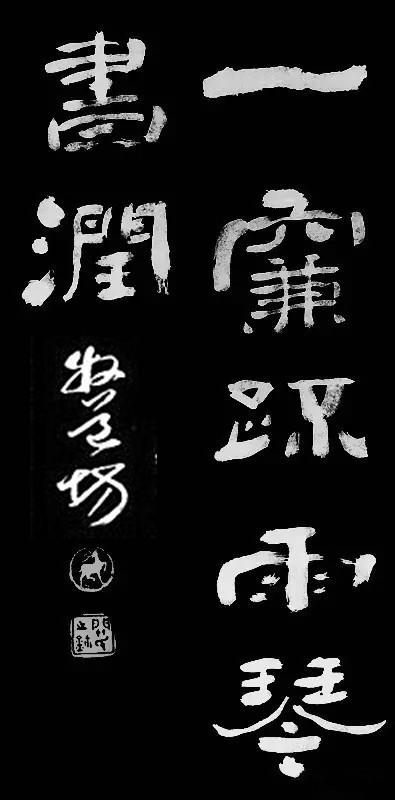 一簾疏雨琴
書潤